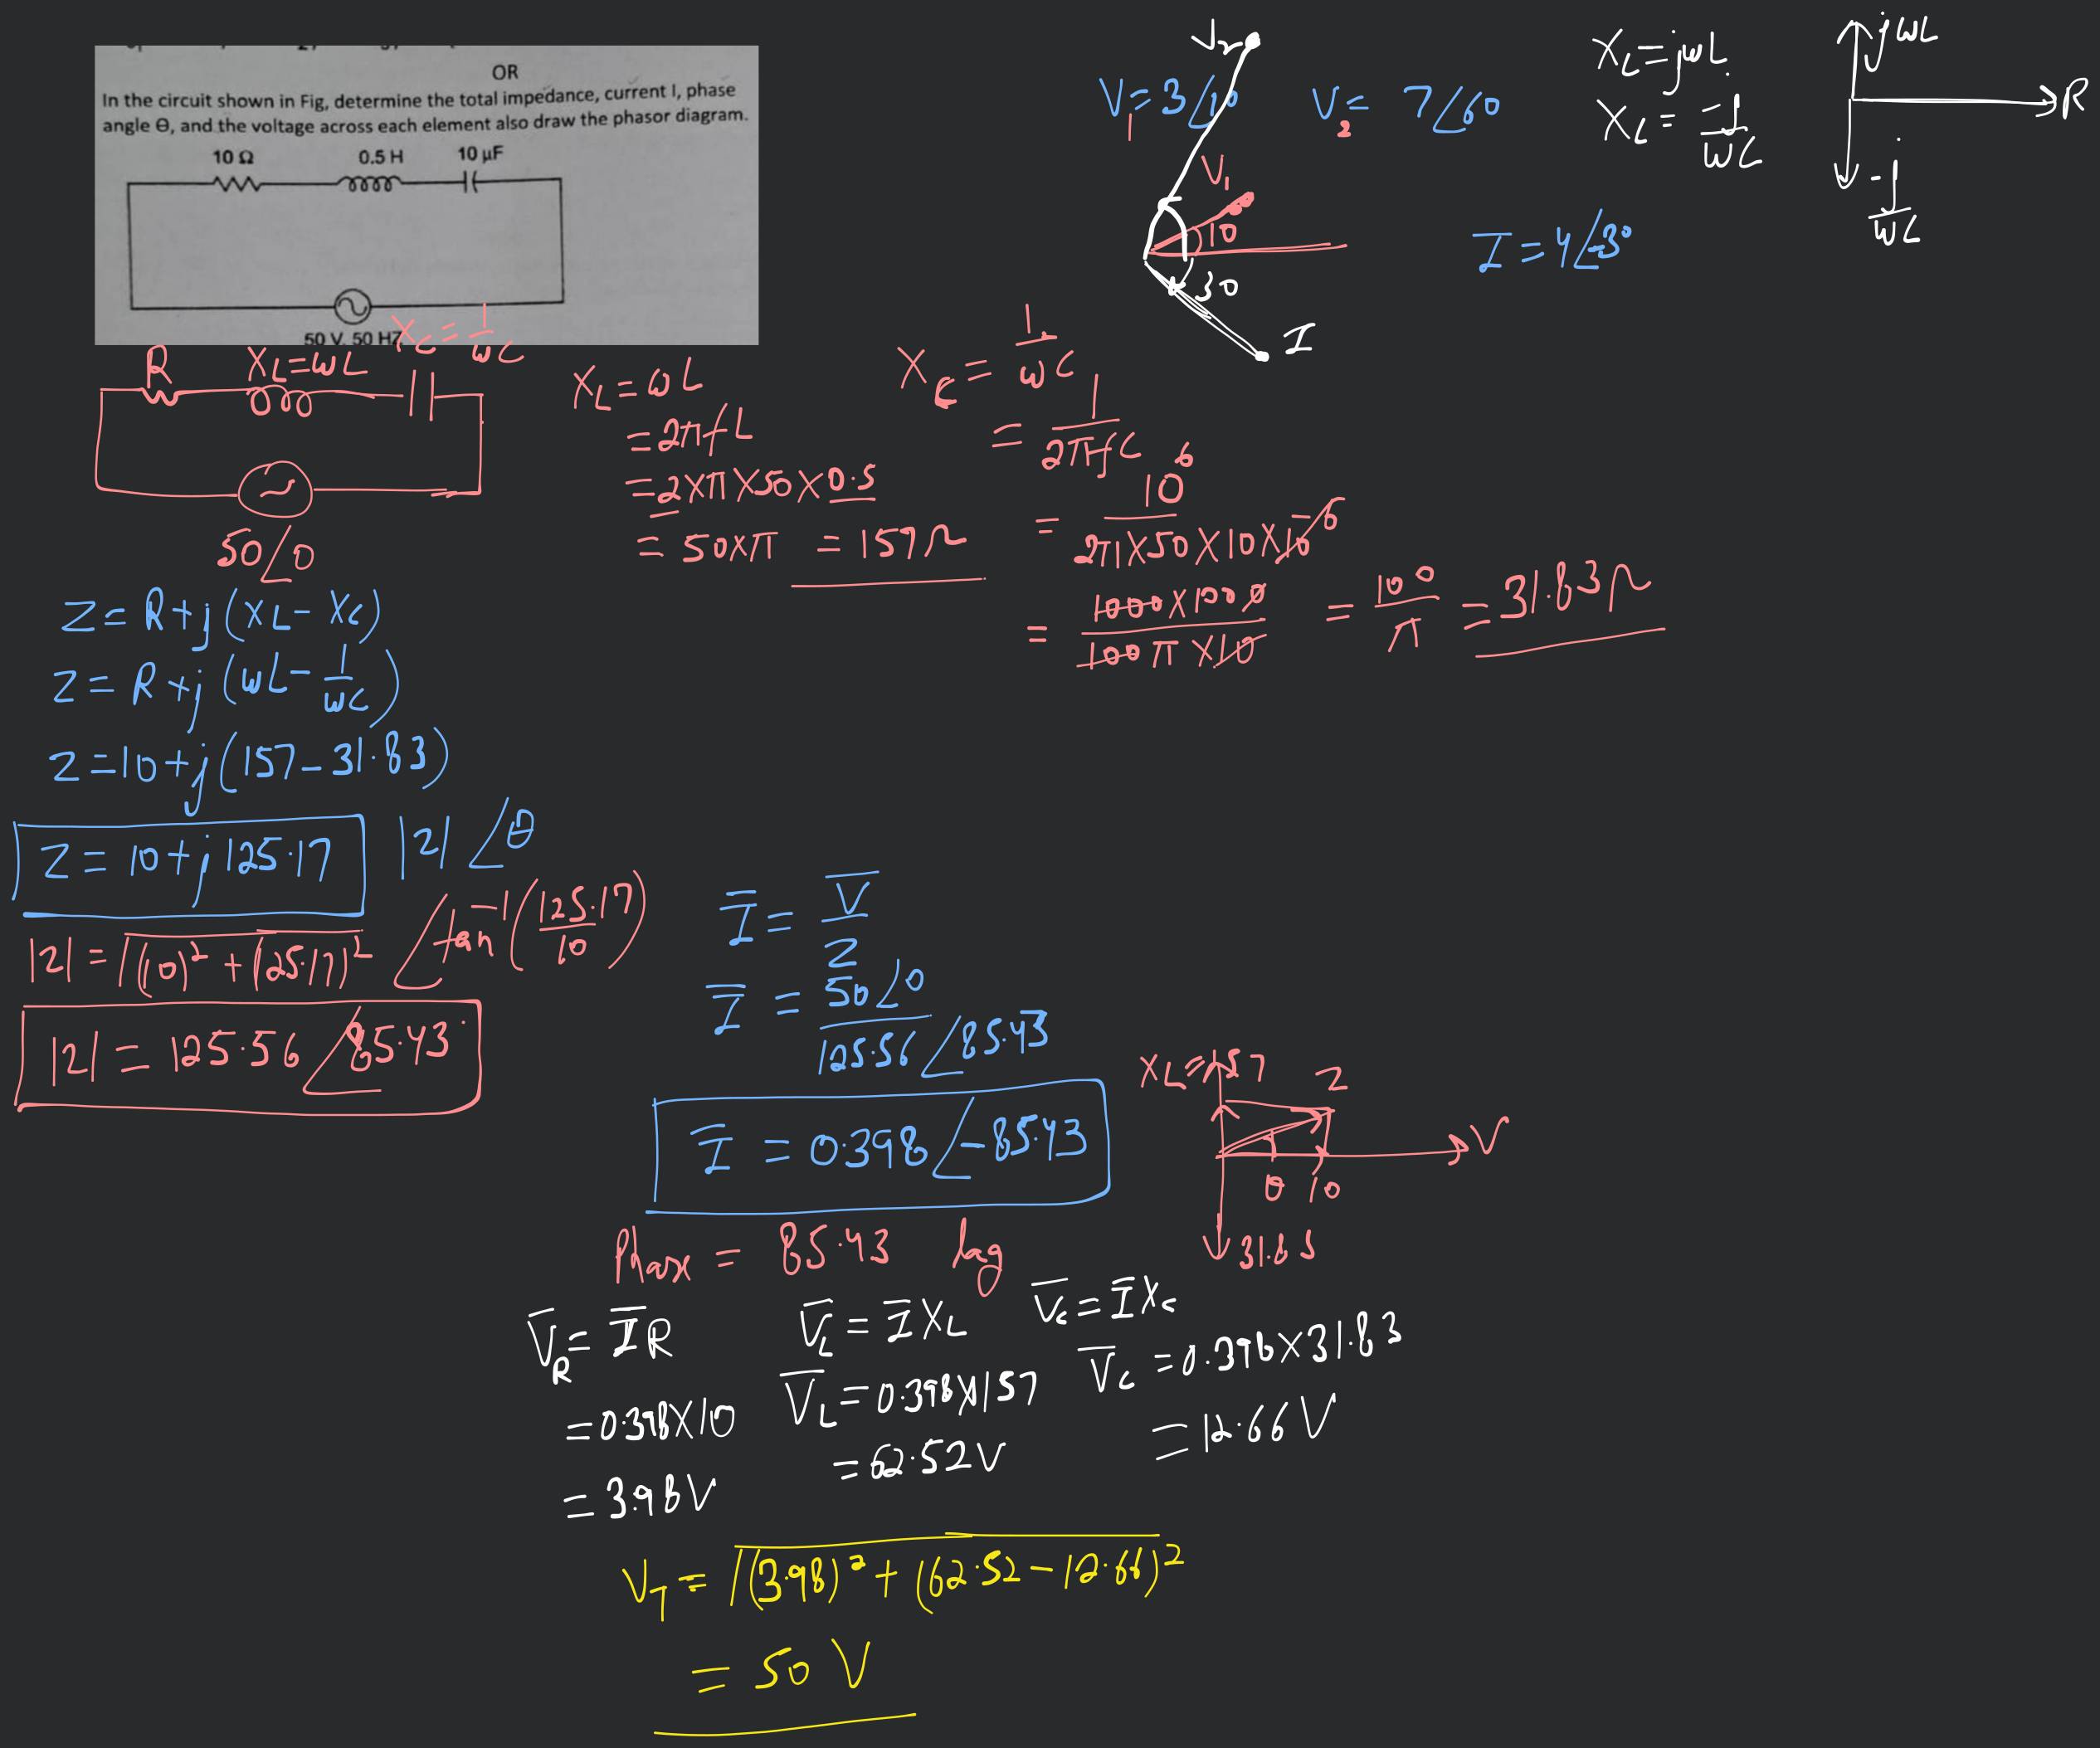 OR
In the circuit shown in Fig, determine the total impedance, current I, phase
angle Θ, and the voltage across each element also draw the phasor diagram.
10 Ω 0.5 H 10 μF
50 V, 50 HZ
V₁ = 3∠10
V₂ = 7∠60
V₂
V₁
10
30
I
X_L = jωL
X_L = -j/ωC
jωL
R
-j/ωC
I̅ = 4∠-30
R X_L = ωL X_C = 1/ωC
50∠0
X_L = ωL
= 2πfL
= 2×π×50×0.5
= 50×π = 157Ω
X_C = 1/ωC
= 1/2πfC
= 10⁶/2π×50×10×10⁻⁶
= 1000×1000/100π×10 = 100/π = 31.83Ω
Z = R+j(X_L - X_C)
Z = R+j(ωL - 1/ωC)
Z = 10+j(157-31.83)
Z = 10+j125.17 |Z| ∠θ
|Z| = √(10)²+(125.17)² ∠tan⁻¹(125.17/10)
|Z| = 125.56 ∠85.43°
I̅ = V̅/Z
I̅ = 50∠0/125.56∠85.43
I̅ = 0.398∠-85.43
Phase = 85.43 lag
X_L = 157 Z
V
θ 10
31.83
V̅_R = I̅R
= 0.398×10
= 3.98V
V̅_L = I̅X_L
V̅_L = 0.398×157
= 62.52V
V̅_C = I̅X_C
V̅_C = 0.398×31.83
= 12.66V
V_T = √(3.98)²+(62.52-12.66)²
= 50V